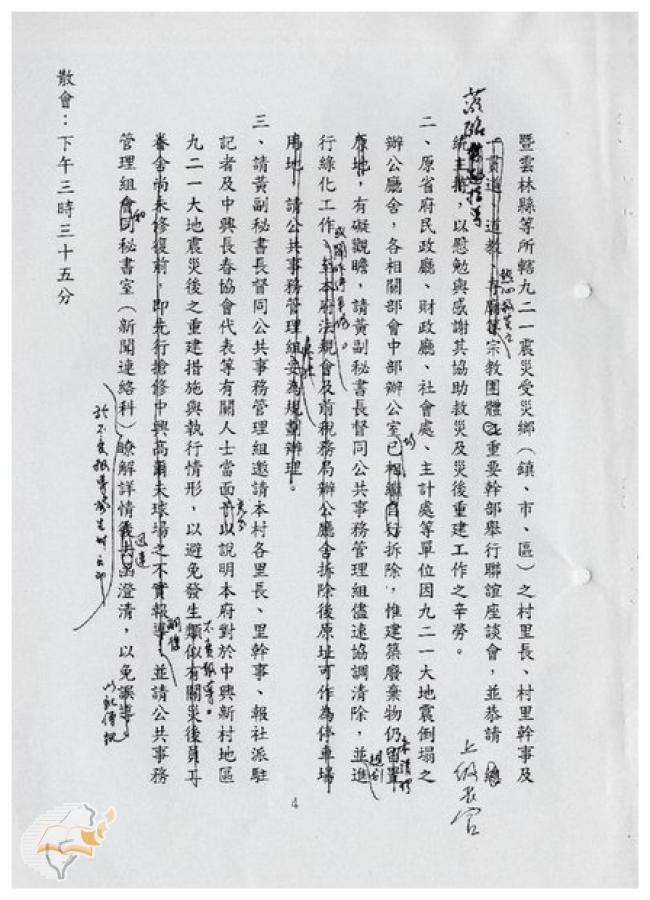 暨雲林縣等所轄九二一震災受災鄉（鎮、市、區）之村里長、村里幹事及
一貫道、道教、寺廟等宗教團體之重要幹部舉行聯誼座談會，並恭請　總
統主持，以慰勉與感謝其協助救災及災後重建工作之辛勞。
上級長官
二、原省府民政廳、財政廳、社會處、主計處等單位因九二一大地震倒塌之
辦公廳舍，各相關部會中部辦公室已相繼自行拆除，惟建築廢棄物仍留置
未清理
原地，有礙觀瞻，請黃副秘書長督同公共事務管理組儘速協調清除，並進
規劃
行綠化工作。至本府法規會及前稅務局辦公廳舍拆除後原址可作為停車場
用地，請公共事務管理組妥為規劃辦理。
三、請黃副秘書長督同公共事務管理組邀請本村各里長、里幹事、報社派駐
記者及中興長春協會代表等有關人士當面予以說明本府對於中興新村地區
九二一大地震災後之重建措施與執行情形，以避免發生類似有關災後員工
不實報導。
眷舍尚未修復前，即先行搶修中興高爾夫球場之不實報導，並請公共事務
管理組會同秘書室（新聞連絡科）瞭解詳情後去函澄清，以免誤導。
迅速
散會：下午三時三十五分
4